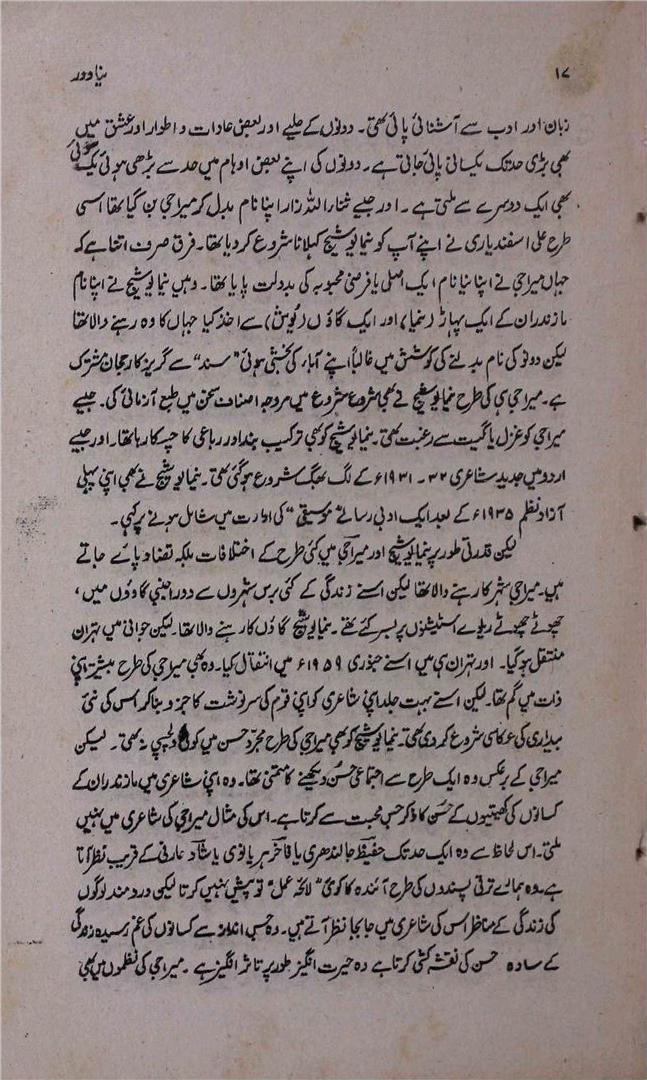 ۱۷ نیا دور
زبان اور ادب سے آشنائی پائی تھی۔ دونوں کے حلیے اور بعض عادات و اطوار اور عشق میں
بھی بڑی حد تک یکسانی پائی جاتی ہے۔ دونوں کی اپنے بعض اوہام میں حد سے بڑھی ہوئی یک گوئی
بھی ایک دوسرے سے ملتی ہے۔ اور جیسے ثناء اللہ ڈار اپنا نام بدل کر میراجی بن گیا تھا اسی
طرح علی اسفندیاری نے اپنے آپ کو نیما یوشیج کہلانا شروع کر دیا تھا۔ فرق صرف اتنا ہے کہ
جہاں میراجی نے اپنا نیا نام، ایک اصلی یا فرضی محبوبہ کی بدولت پایا تھا۔ وہیں نیما یوشیج نے اپنا نام
مازندران کے ایک پہاڑ (نیما) اور ایک گاؤں (یُوش) سے اخذ کیا جہاں کا وہ رہنے والا تھا
لیکن دونو کی نام بدلنے کی کوشش میں غالباً اپنے آباء کی بخشی ہوئی "سند" سے گریز کا رجحان مشترک
ہے۔ میراجی ہی کی طرح نیما یوشیج نے بھی شروع شروع میں مروجہ اصناف سخن میں طبع آزمائی کی۔ جیسے
میراجی کو غزل یا گیت سے رغبت تھی۔ نیما یوشیج کو بھی ترکیب بند اور رباعی کا چسکا رہا تھا۔ اور جیسے
اردو میں جدید شاعری ۳۲ - ۱۹۳۱ء کے لگ بھگ شروع ہو گئی تھی۔ نیما یوشیج نے بھی اپنی پہلی
آزاد نظم ۱۹۳۵ء کے بعد ایک ادبی رسالے "موسیقی" کی ادارت میں شامل ہونے پر کہی۔
لیکن قدرتی طور پر نیما یوشیج اور میراجی میں کئی طرح کے اختلافات بلکہ تضاد پائے جاتے
ہیں۔ میراجی شہر کا رہنے والا تھا لیکن اسنے زندگی کے کئی برس شہروں سے دور اجنبی گاوؤں میں،
چھوٹے چھوٹے ریلوے اسٹیشنوں پر بسر کئے تھے۔ نیما یوشیج گاؤں کا رہنے والا تھا۔ لیکن جوانی میں تہران
منتقل ہو گیا۔ اور تہران ہی میں اسنے جنوری ۱۹۵۹ء میں انتقال کیا۔ وہ بھی میراجی کی طرح بیشتر اپنی
ذات میں گم تھا۔ لیکن اسنے بہت جلد اپنی شاعری کو اپنی قوم کی سرنوشت کا جزو بنا کر اس کی نئی
بیداری کی عکاسی شروع کر دی تھی۔ نیما یوشیج کو بھی میراجی کی طرح مجرّد حسن میں کوئی دلچسپی نہ تھی۔ لیکن
میراجی کے برعکس وہ ایک طرح سے اجتماعی حسن دیکھنے کا متمنی تھا۔ وہ اپنی شاعری میں مازندران کے
کسانوں کی کھیتیوں کے حُسن کا ذکر جس محبت سے کرتا ہے۔ اس کی مثال میراجی کی شاعری میں نہیں
ملتی۔ اس لحاظ سے وہ ایک حد تک حفیظ جالندھری یا فاخر ہریانوی یا شاد عارفی کے قریب نظر آتا
ہے۔ وہ ہمارے ترقی پسندوں کی طرح آئندہ کا کوئی "لائحہ عمل" تو پیش نہیں کرتا لیکن دردمند لوگوں
کی زندگی کے مناظر اس کی شاعری میں جا بجا نظر آتے ہیں۔ وہ جس انداز سے کسانوں کی غم رسیدہ زندگی
کے سادہ حسن کی نقشہ کشی کرتا ہے وہ حیرت انگیز طور پر تاثر انگیز ہے۔ میراجی کی نظموں میں بھی